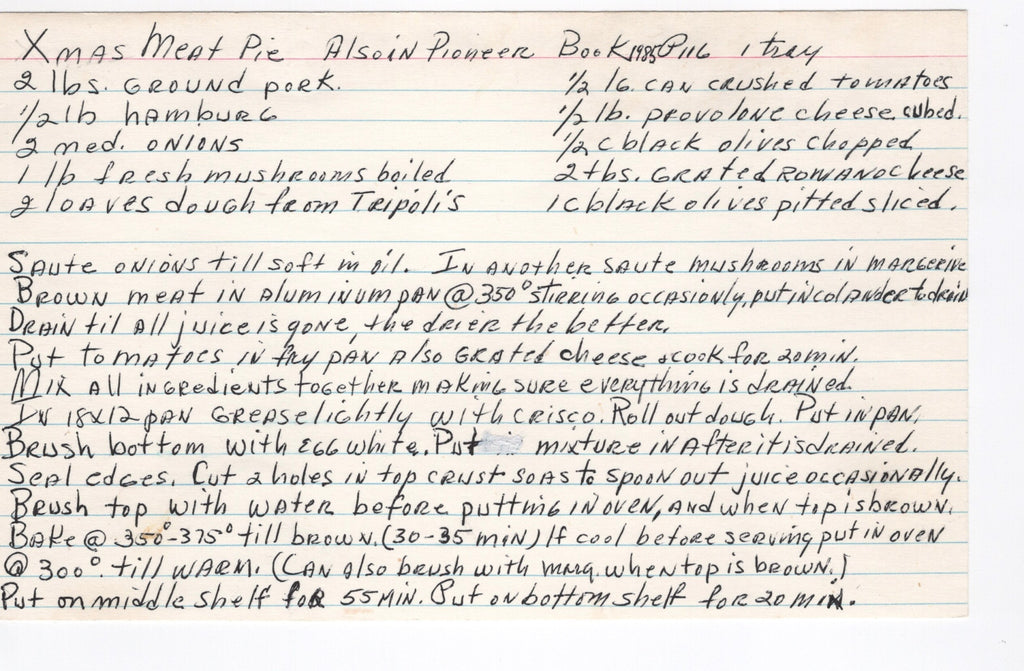 Xmas Meat Pie Also in Pioneer Book 1985 P116 1 tray
2 lbs. Ground pork.
1/2 lb hamburg
2 med. onions
1 lb fresh mushrooms boiled
2 loaves dough from Tripoli's
1/2 lb. can crushed tomatoes
1/2 lb. provolone cheese, cubed.
1/2 c black olives chopped
2 tbs. grated Romano cheese
1 c black olives pitted sliced.
Saute onions till soft in oil. In another saute mushrooms in margerine
Brown meat in aluminum pan @ 350° stirring occasionly, put in colander to drain
Drain til all juice is gone, the drier the better.
Put tomatoes in fry pan also grated cheese & cook for 20 min.
Mix all ingredients together making sure everything is drained.
In 18x12 pan grease lightly with crisco. Roll out dough. Put in pan.
Brush bottom with egg white. Put mixture in after it is drained.
Seal edges. Cut 2 holes in top crust so as to spoon out juice occasionally.
Brush top with water before putting in oven, and when top is brown.
Bake @ 350°-375° till brown. (30-35 min) If cool before serving put in oven
@ 300° till warm. (Can also brush with marg. when top is brown.)
Put on middle shelf for 55 min. Put on bottom shelf for 20 min.